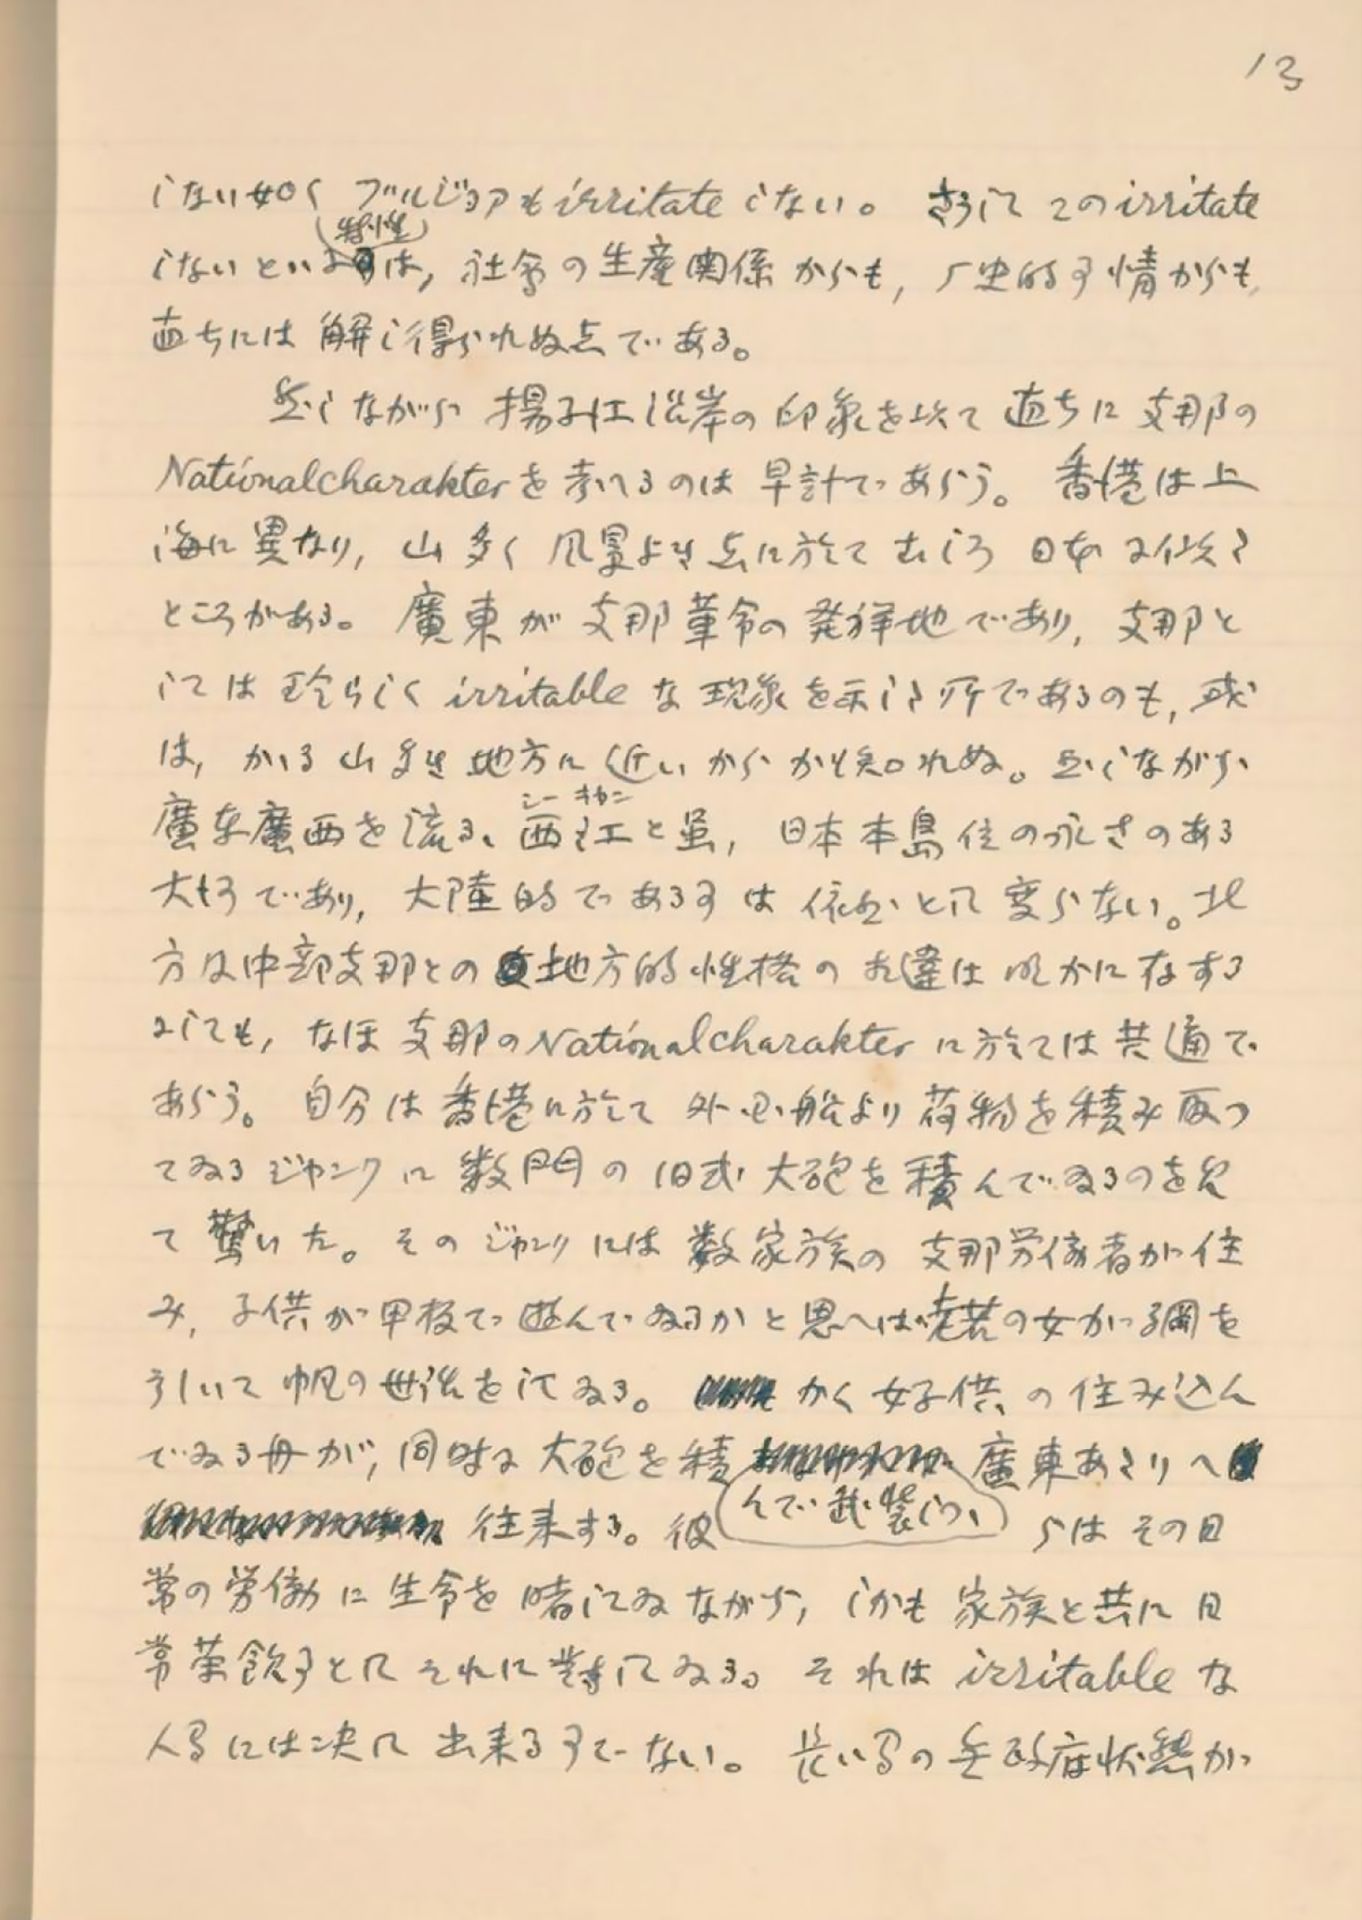 13
しない如く ブルジョアも irritate しない。 そうして この irritate
しないといふ特性は, 社会の生産関係からも, 歴史的事情からも,
直ちには 解し得られぬ点である。
然しながら 揚子江沿岸の印象を以て 直ちに 支那の
Nationalcharakterを考へるのは 早計であらう。 香港は上
海に異なり, 山多く 風景よき点に於て むしろ 日本に似た
ところがある。 廣東が 支那革命の発祥地であり, 支那と
しては 珍らしく irritable な 現象を示した所であるのも, 或
は, かゝる山多き地方に近いからかも知れぬ。 然しながら
廣東廣西を流るゝ西江と虽, 日本本島位の永さのある
シーキヤン
大河であり, 大陸的である事は 依然として 変らない。北
方及中部支那との地方的性格の相違は 明かに存する
にしても, なほ 支那の Nationalcharakter に於ては共通で
あらう。 自分は香港に於て 外国船より 荷物を積み取つ
てゐる ジヤンクに 数門の 旧式大砲を積んでゐるのを見
て 驚いた。 その ジヤンクには 数家族の 支那労働者が住
み, 子供が甲板で遊んでゐるかと思へば老若の女が綱を
引いて 帆の世話をしてゐる。 かく 女子供の住み込ん
でゐる舟が, 同時に 大砲を積んで武装しつゝ 廣東あたりへ
往来する。彼らは その日
常の労働に 生命を賭してゐながら, しかも 家族と共に 日
常茶飯事として それに対してゐる。 それは irritable な
人間には決して 出来る事でない。 長い間の無政府状態が